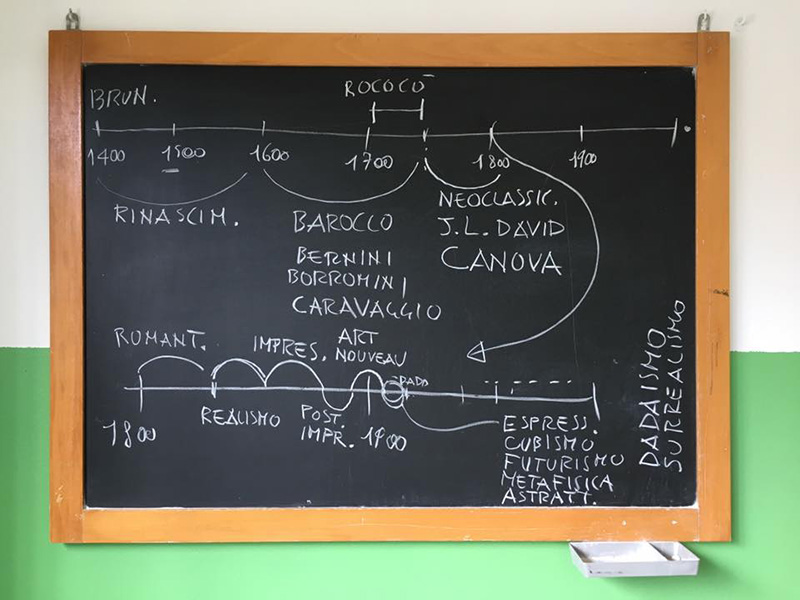 ROCOCÒ
BRUN.
1400 1500 1600 1700 1800 1900
RINASCIM.
BAROCCO
BERNINI
BORROMINI
CARAVAGGIO
NEOCLASSIC.
J.L. DAVID
CANOVA
ROMANT.
IMPRES.
ART
NOUVEAU
DADA
1800
REALISMO
POST.
IMPR.
1900
ESPRESS.
CUBISMO
FUTURISMO
METAFISICA
ASTRATT.
DADAISMO
SURREALISMO